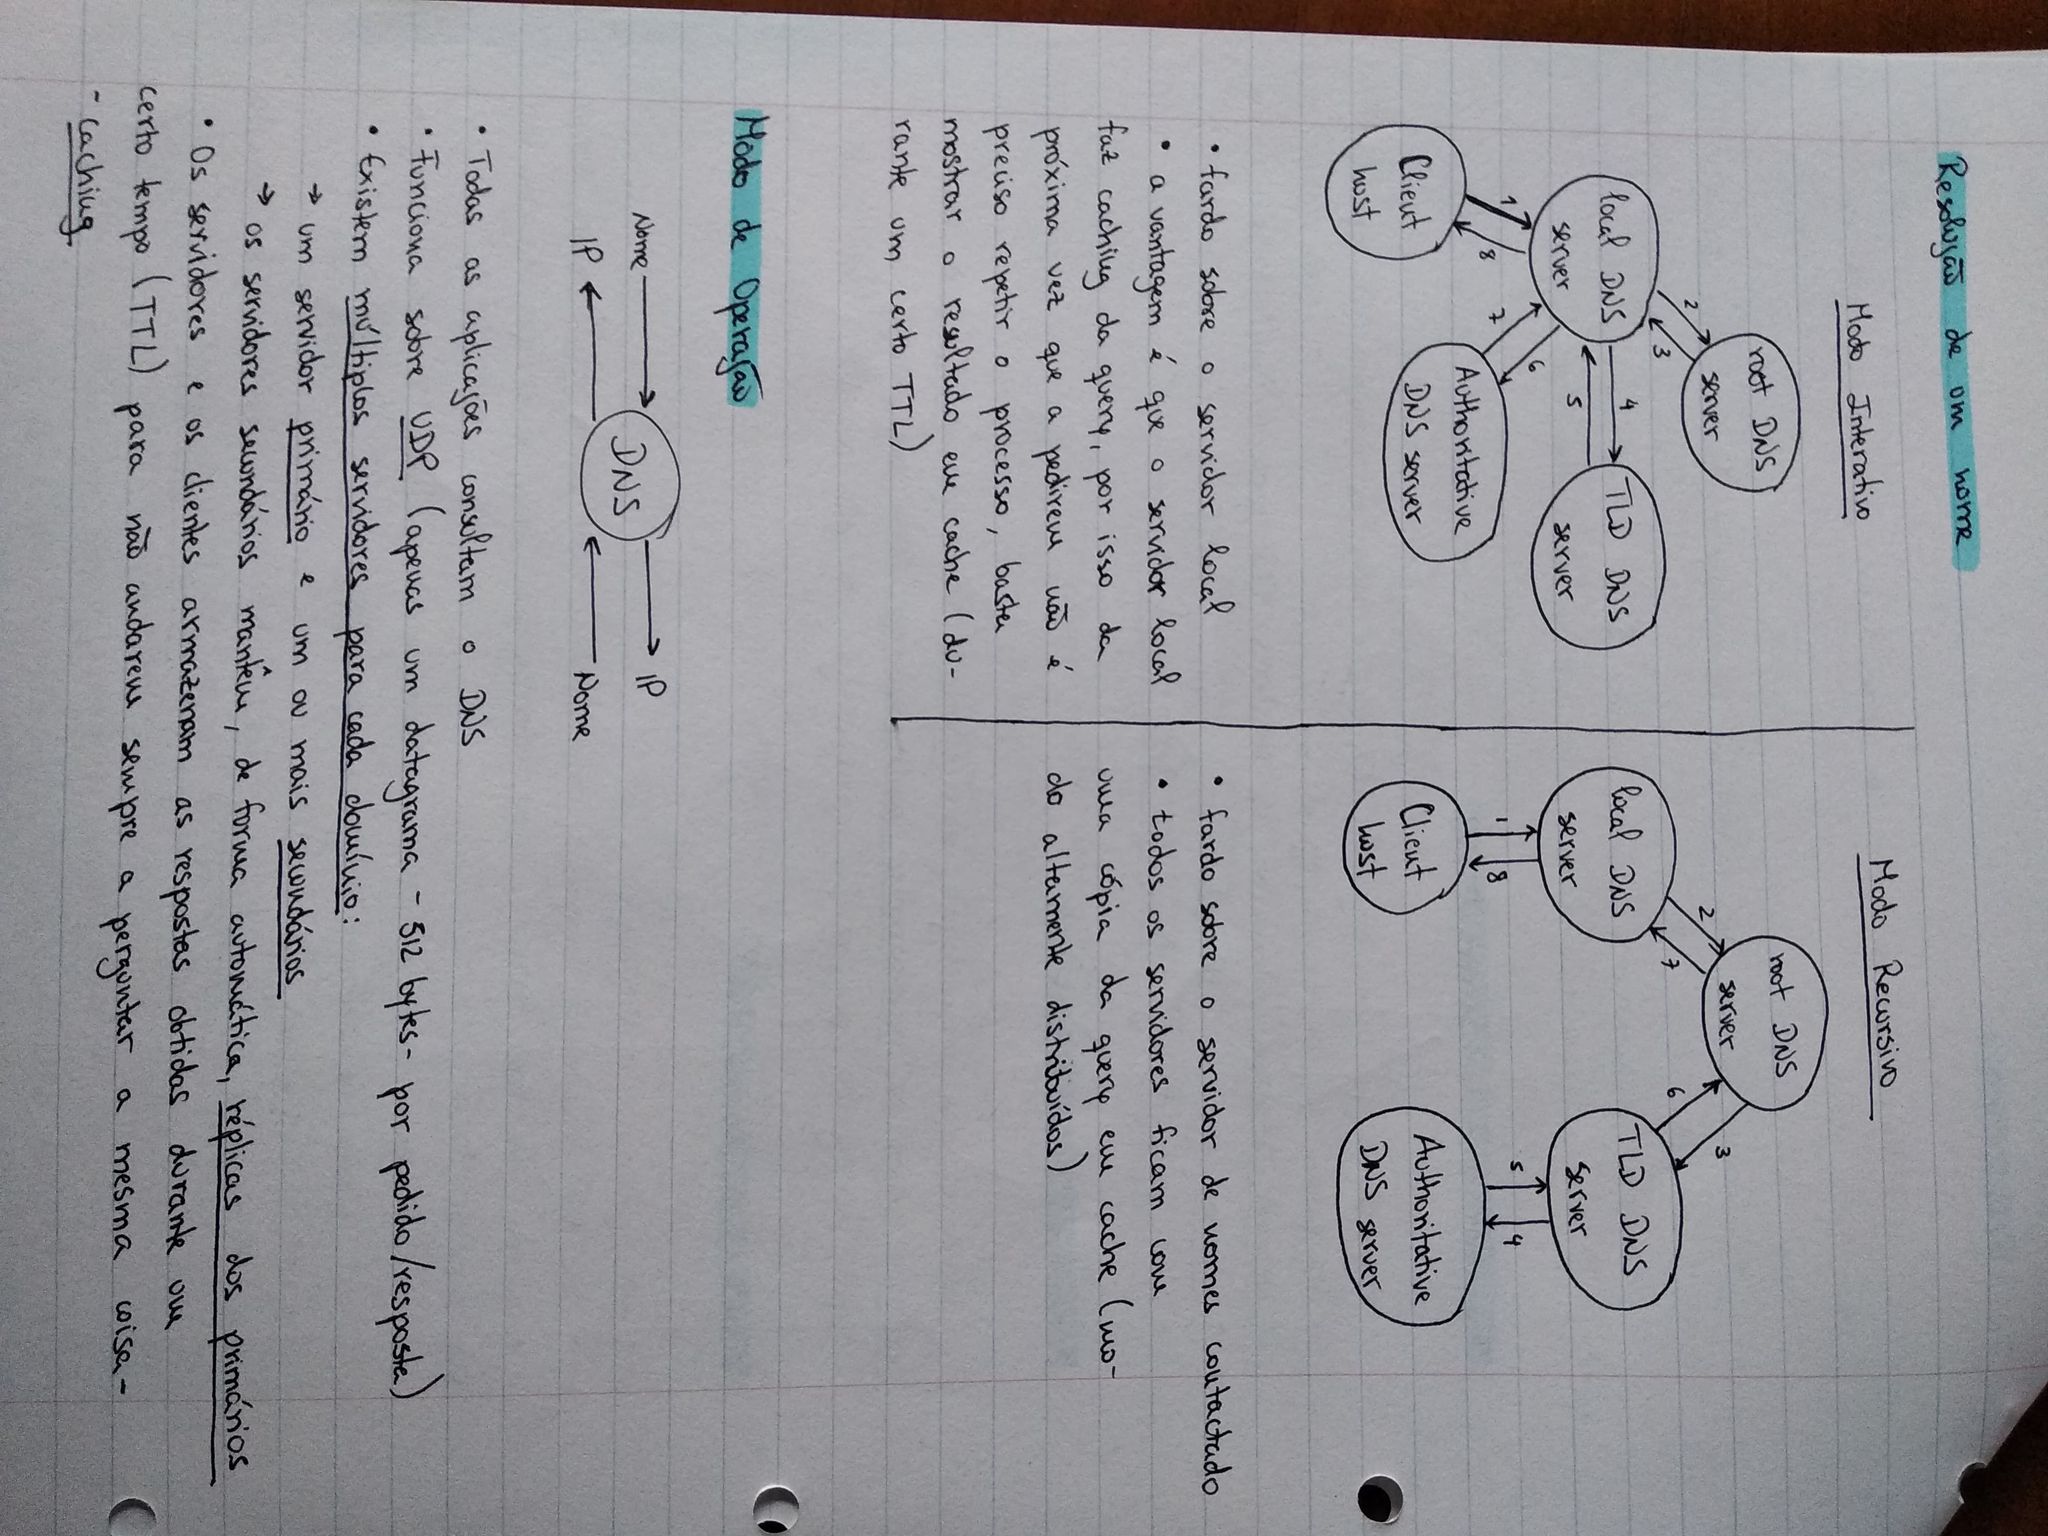 Resolução de um nome
Modo Interativo
root DNS
server
2
3
local DNS
server
4
5
TLD DNS
server
6
7
1
8
Authoritative
DNS server
Client
host
• fardo sobre o servidor local
• a vantagem é que o servidor local
faz caching da query, por isso da
próxima vez que a pedirem não é
preciso repetir o processo, basta
mostrar o resultado em cache (du-
rante um certo TTL)
Modo Recursivo
root DNS
server
2
7
3
6
local DNS
server
TLD DNS
server
1
8
5
4
Client
host
Authoritative
DNS server
• fardo sobre o servidor de nomes contactado
• todos os servidores ficam com
uma cópia da query em cache (mo-
do altamente distribuídos)
Modo de Operação
Nome
DNS
IP
IP
Nome
• Todas as aplicações consultam o DNS
• Funciona sobre UDP (apenas um datagrama - 512 bytes - por pedido/resposta)
• Existem múltiplos servidores para cada domínio:
→ um servidor primário e um ou mais secundários
→ os servidores secundários mantêm, de forma automática, réplicas dos primários
• Os servidores e os clientes armazenam as respostas obtidas durante um
certo tempo (TTL) para não andarem sempre a perguntar a mesma coisa-
- caching